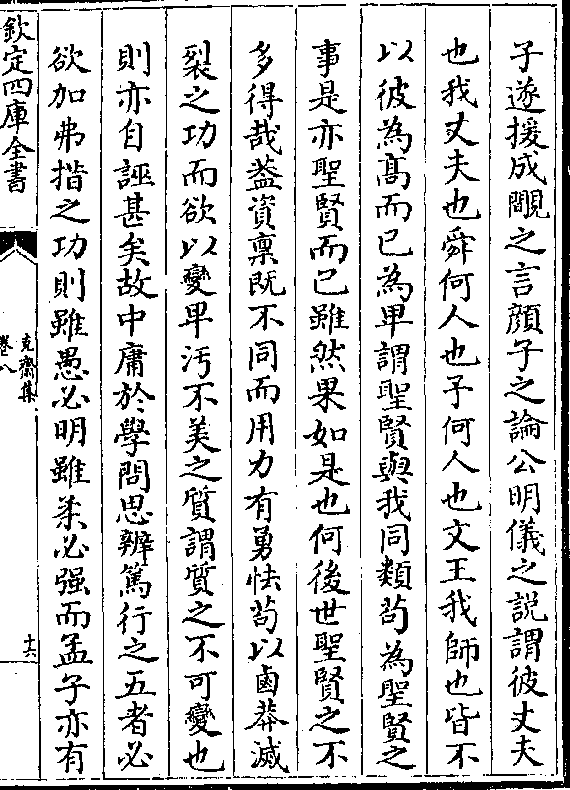 子遂援成覵之言顔子之論公明儀之説謂彼丈夫
也我丈夫也舜何人也予何人也文王我師也皆不
以彼為髙而已為卑謂聖賢與我同類茍為聖賢之
事是亦聖賢而已雖然果如是也何後世聖賢之不
多得哉葢資禀既不同而用力有勇怯茍以鹵莽滅
裂之功而欲以變卑汚不美之質謂質之不可變也
則亦自誣甚矣故中庸於學問思辨篤行之五者必
欲加弗措之功則雖愚必明雖柔必强而孟子亦有
欽定四庫全書
克齋集
卷八
十六